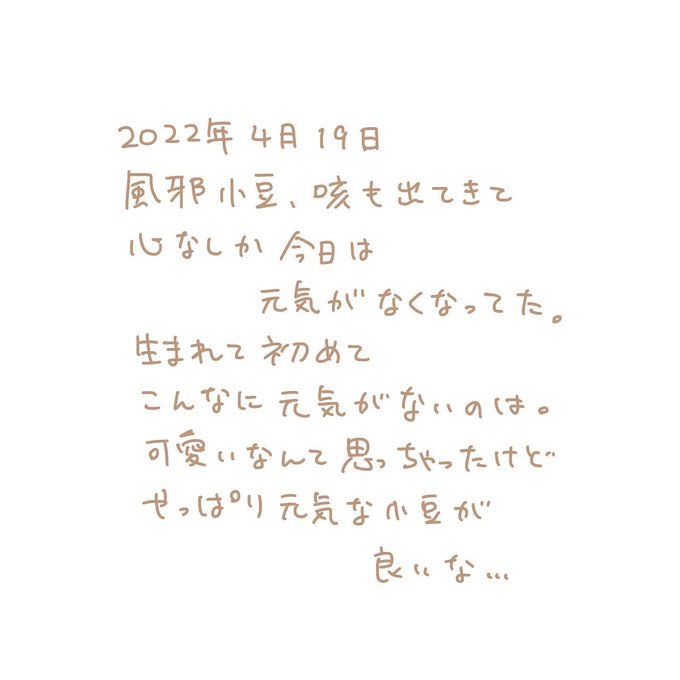 2022年4月19日
風邪小豆、咳も出てきて
心なしか今日は
元気がなくなってた。
生まれて初めて
こんなに元気がないのは。
可愛いなんて思っちゃったけど
やっぱり元気な小豆が
良いな...